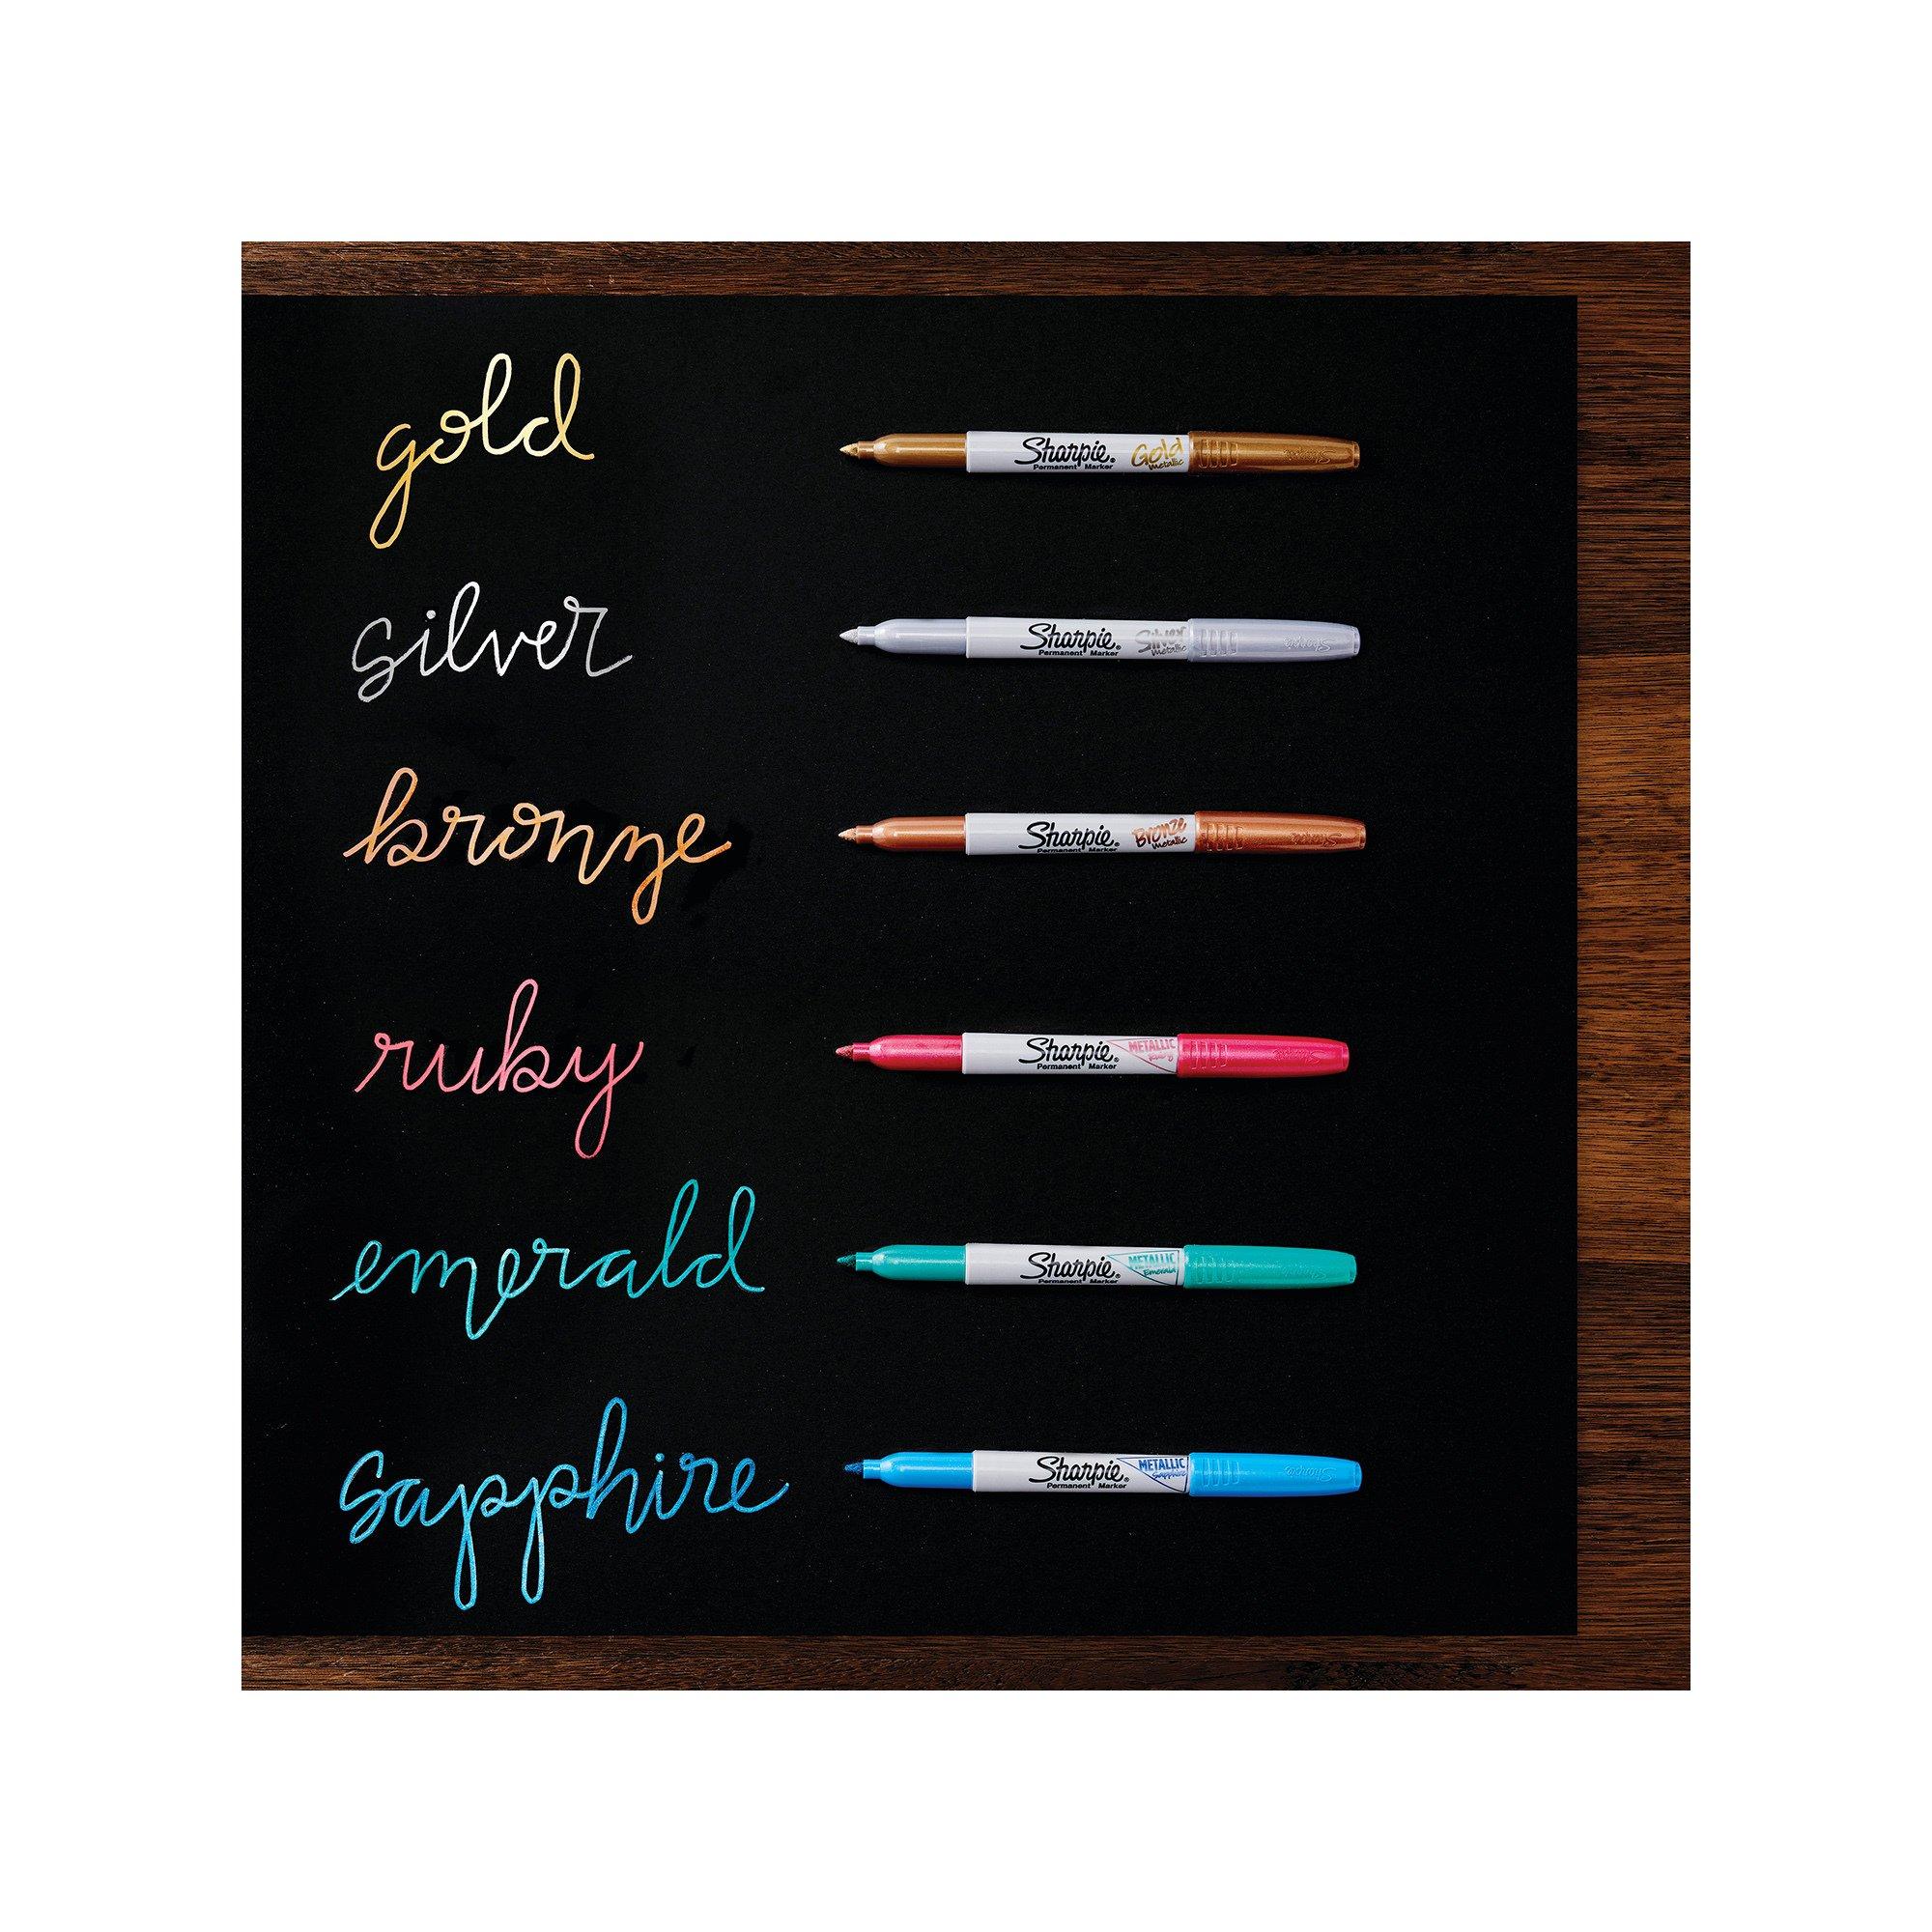 gold
Sharpie® Gold
Permanent Marker Metallic
silver
Sharpie® Silver
Permanent Marker Metallic
bronze
Sharpie® Bronze
Permanent Marker Metallic
ruby
Sharpie® METALLIC
Permanent Marker Ruby
emerald
Sharpie® METALLIC
Permanent Marker Emerald
sapphire
Sharpie® METALLIC
Permanent Marker Sapphire